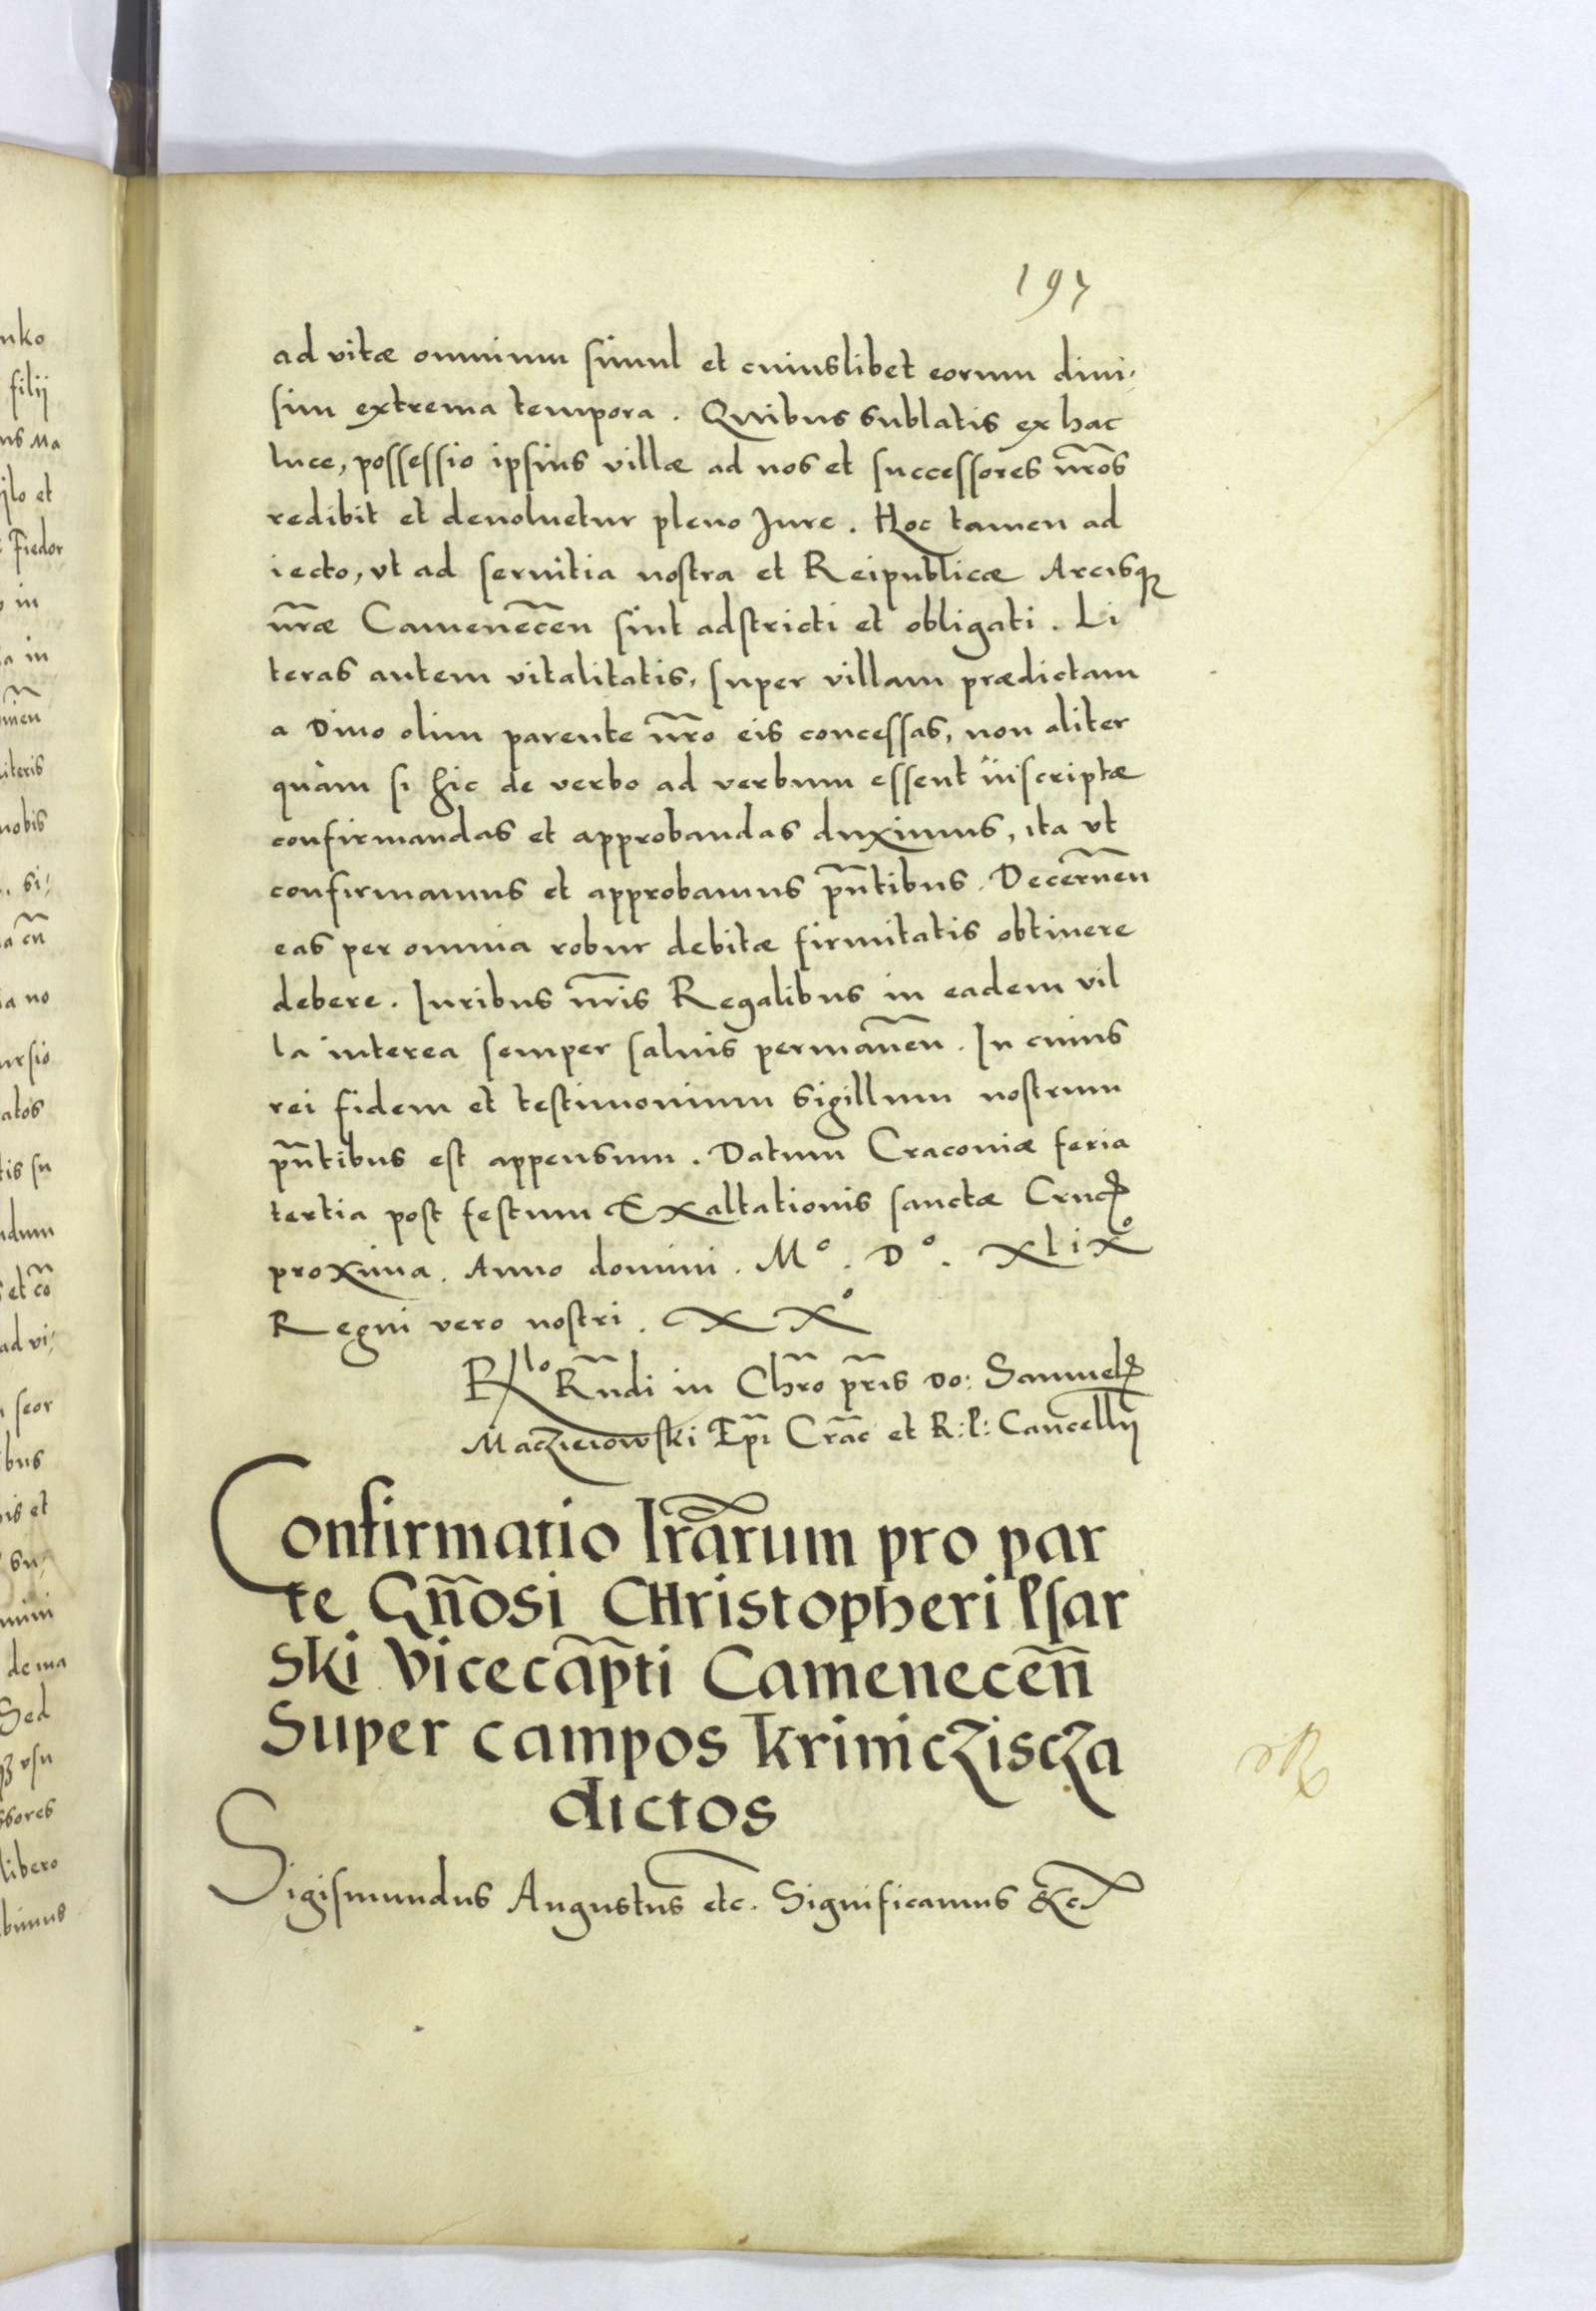 197
ad vitæ omnium simul et cuiuslibet eorum diui-
sim extrema tempora. Quibus sublatis ex hac
luce, possessio ipsius villæ ad nos et successores nr̃os
redibit et deuoluetur pleno Jure. Hoc tamen ad
iecto, vt ad seruitia nostra et Reipublicæ Arcisq
nr̃æ Camenecẽn sint adstricti et obligati. Li
teras autem vitalitatis, super villam prædictam
a Diuo olim parente nr̃o eis concessas, non aliter
quàm si hic de verbo ad verbum essent inscriptæ
confirmandas et approbandas duximus, ita vt
confirmamus et approbamus pñtibus. Decernẽn
eas per omnia robur debitæ firmitatis obtinere
debere. Iuribus nr̃is Regalibus in eadem vil
la interea semper saluis permanẽn. In cuius
rei fidem et testimonium sigillum nostrum
pñtibus est appensum. Datum Cracouiæ feria
tertia post festum Exaltationis sanctæ Cruc
proxima. Anno domini. Mº. Dº. XLiXº
Regni vero nostri. XXº
Rlo Rñdi in Chr̃o pr̃is Do: Samuel
Maczieiowski Ep̃i Crãc et R: P: Cancellÿ
Confirmatio lr̃arum pro par
te Gñosi Christopheri Psar
ski Vicecãpti Camenecẽn
Super campos krinicziscza
dictos
Sigismundus Augustus etc. Significamus &c